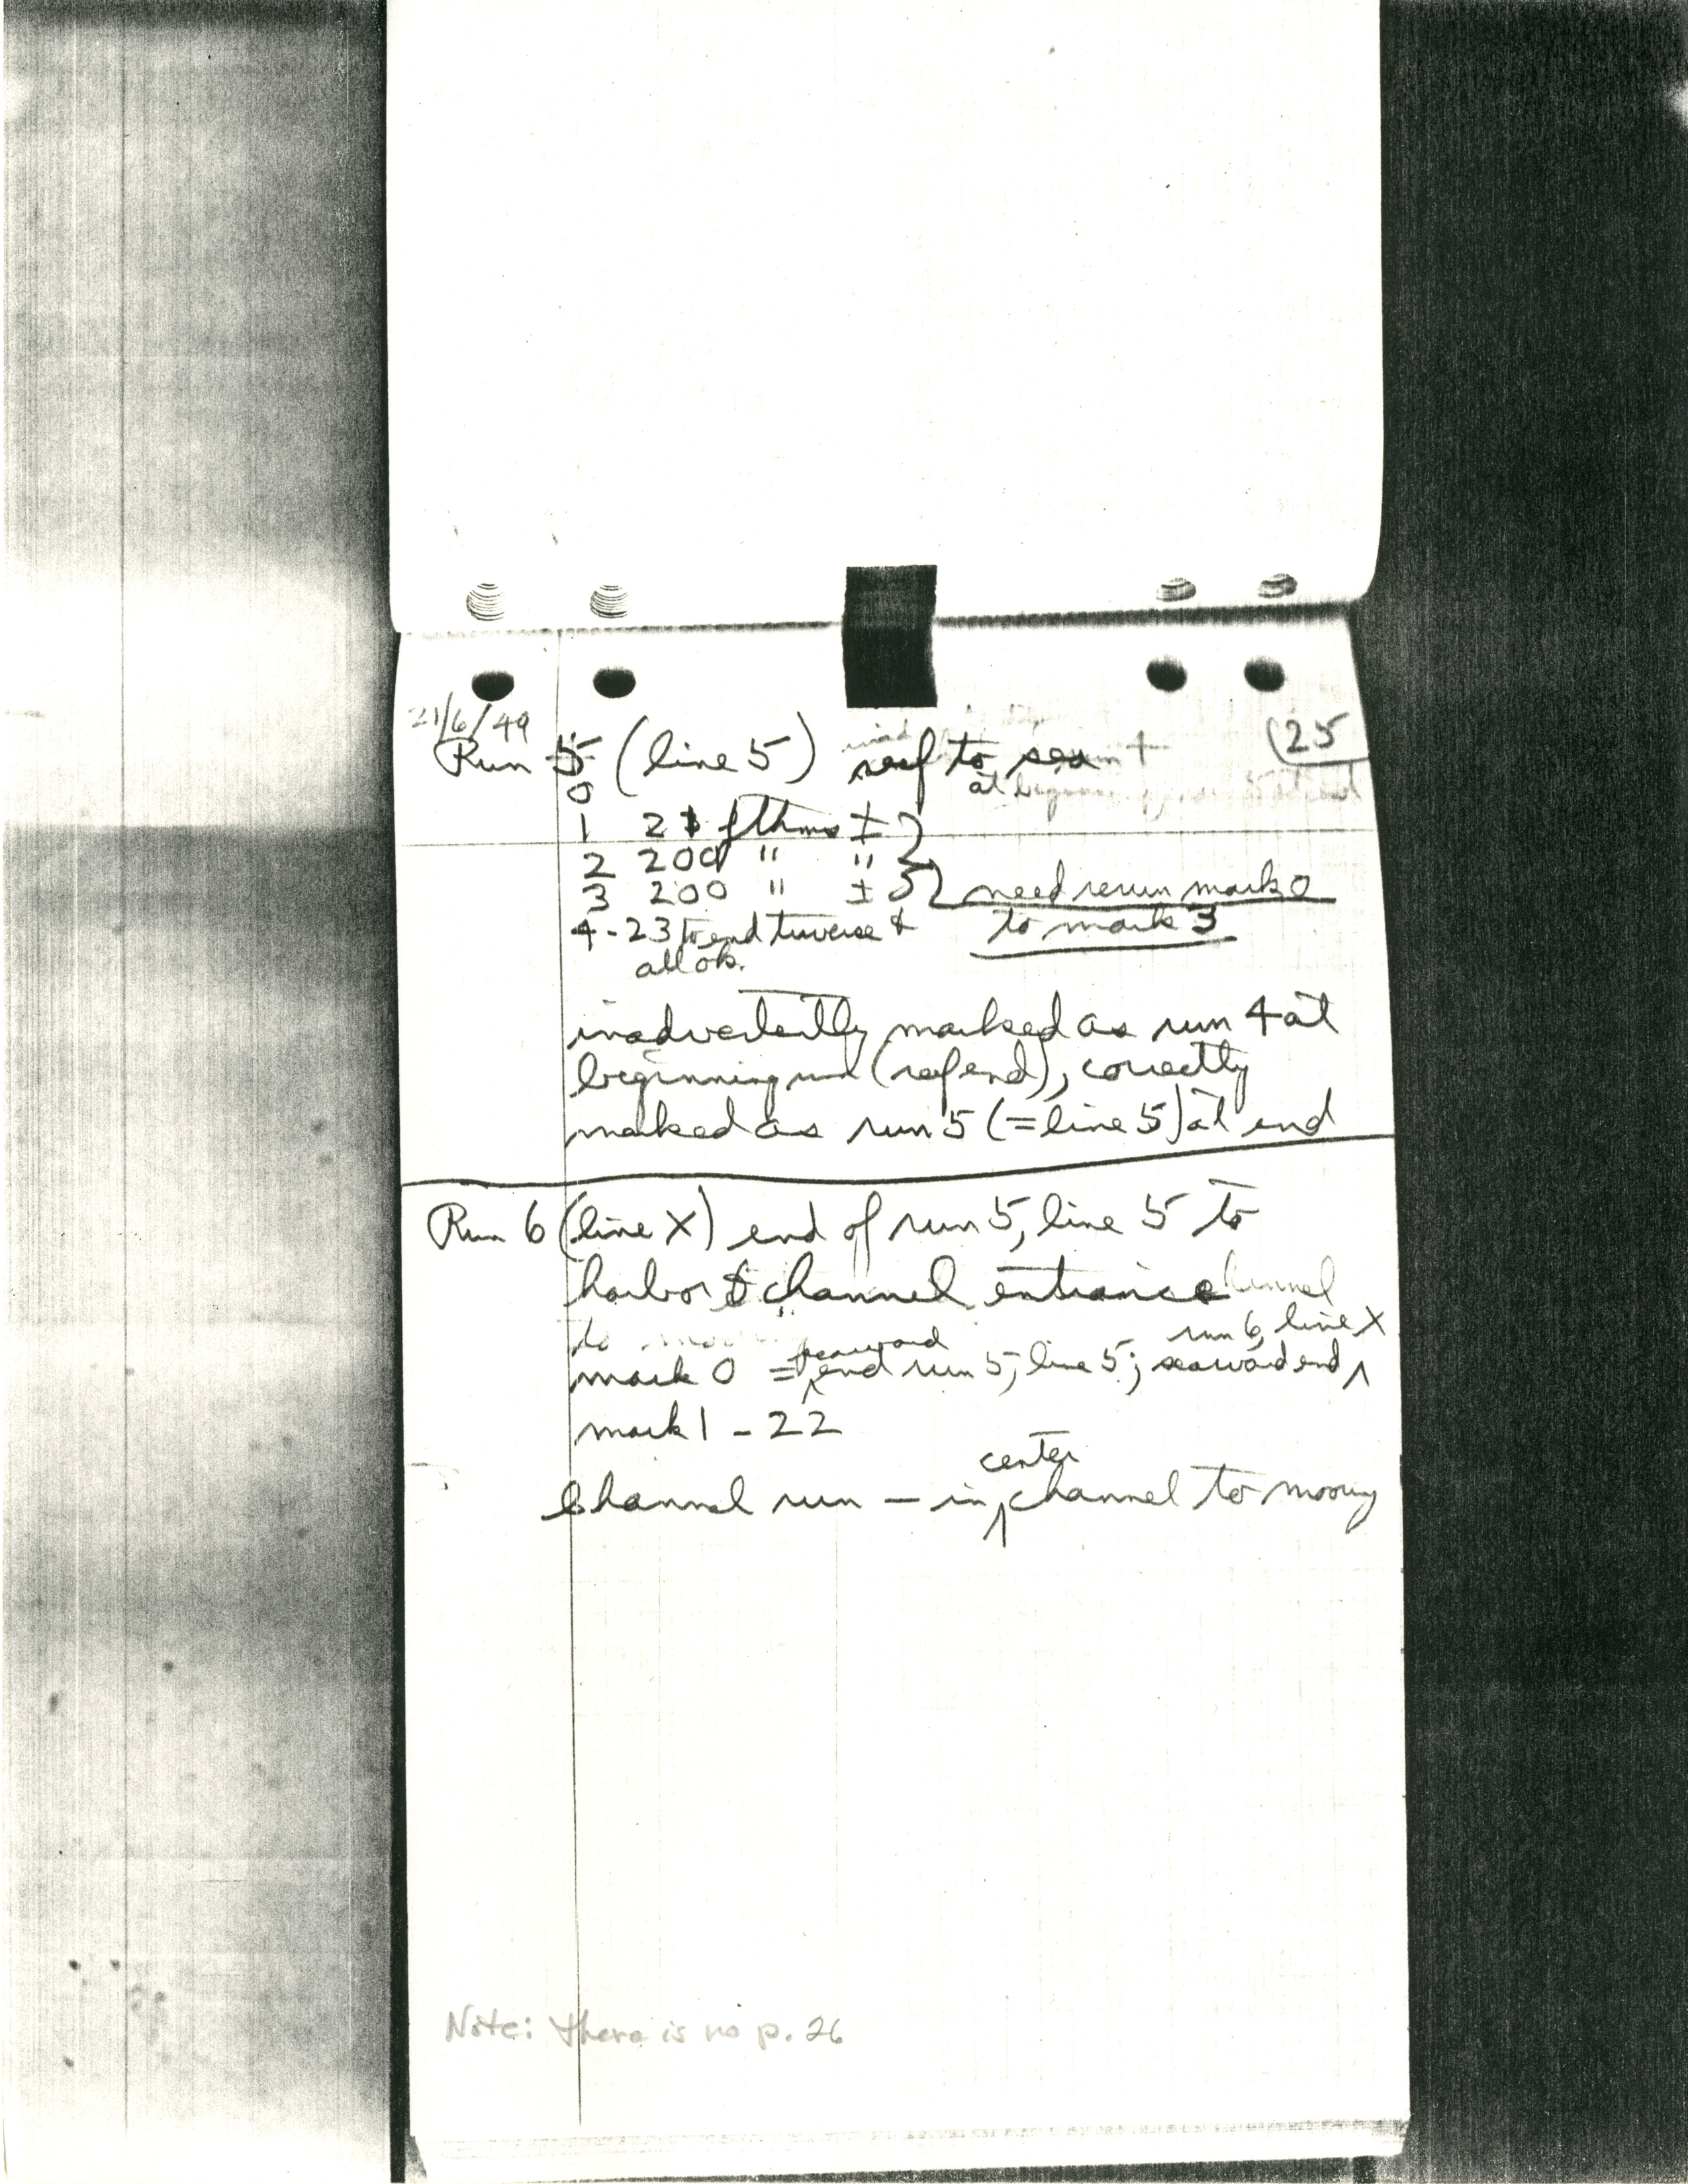 21/6/49
25
Run 5 (line 5) reef to sea
at
0
1 21 fthms ±
2 200 " "
3 200 " ± need rerun mark 0
to mark 3
4-23 to end traverse &
all ok.
inadvertently marked as run 4 at
beginning run (reef end), correctly
marked as run 5 (= line 5) at end
Run 6 (line X) end of run 5, line 5 to
harbor & channel entrance
to
seaward run 6, line X
mark 0 = end run 5, line 5; seaward end
mark 1 - 22
center
channel run – in channel to mooring
Note: there is no p. 26